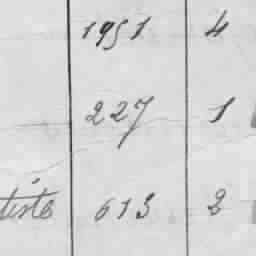 1951 4
227 1
tiste 613 2